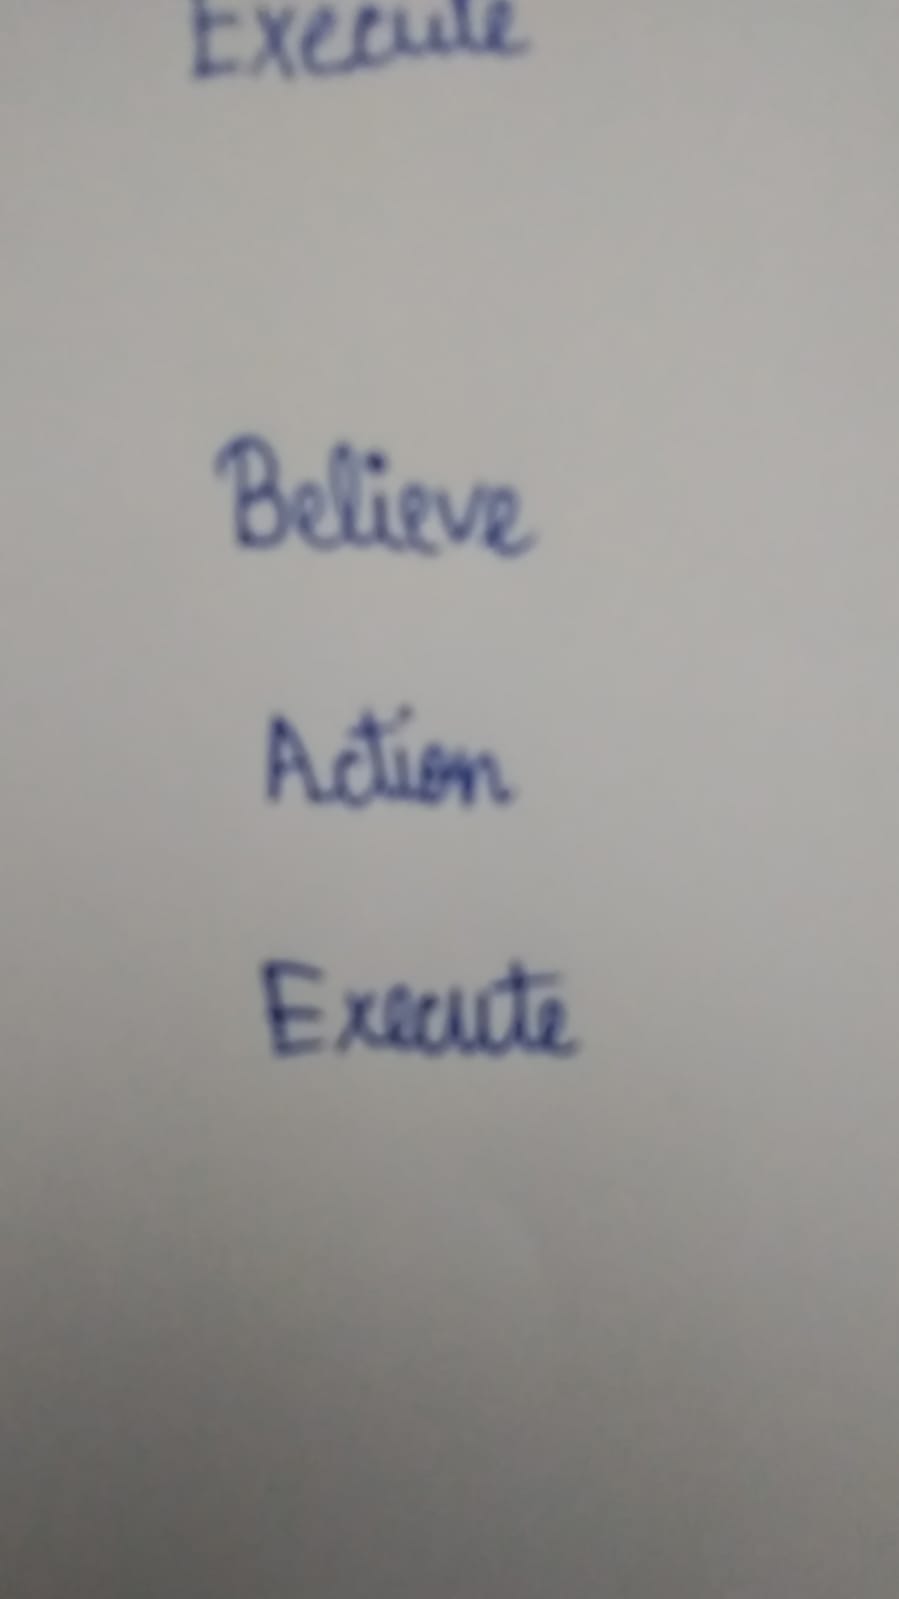 Execute
Believe
Action
Execute